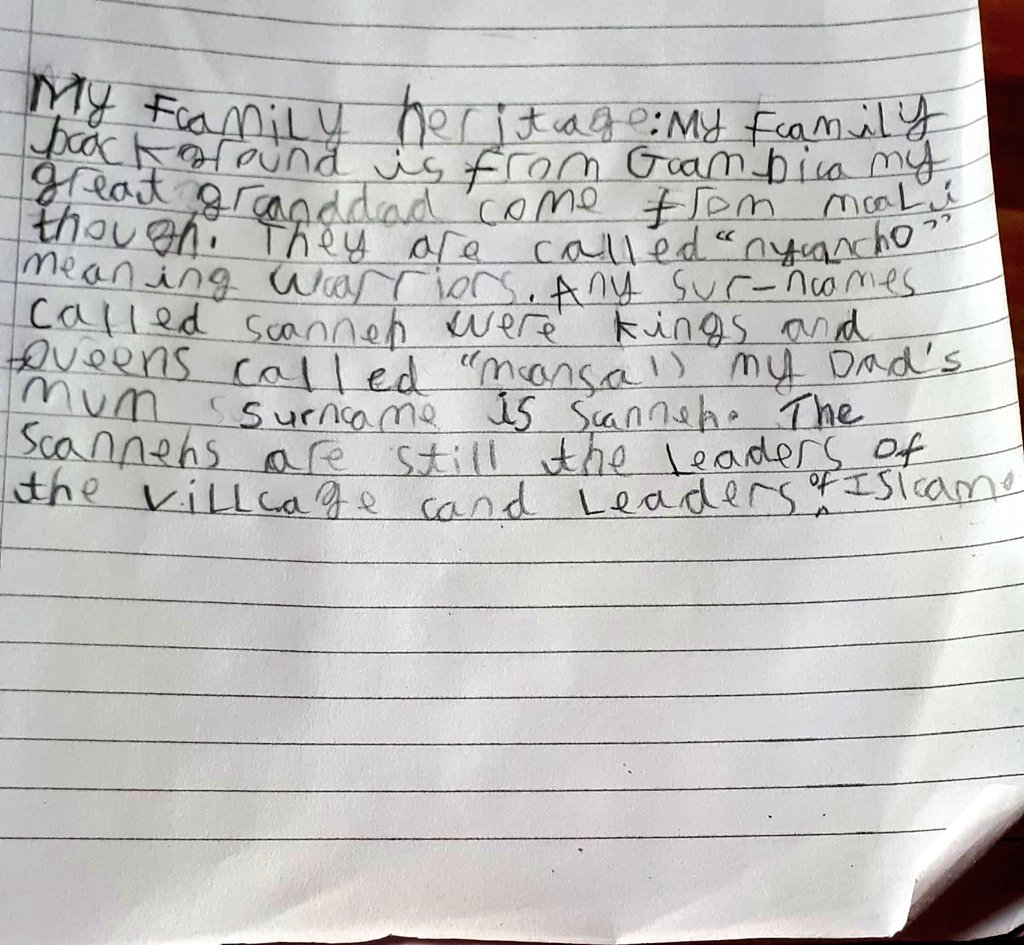 My Family heritage: My Family
background is from Gambia my
great granddad come from mali
though. They are called "nyancho"
meaning warriors. Any sur-names
called sanneh were kings and
queens called "mansa" my Dad's
mum surname is sanneh. The
sannehs are still the leaders of
the village and leaders of Islam.